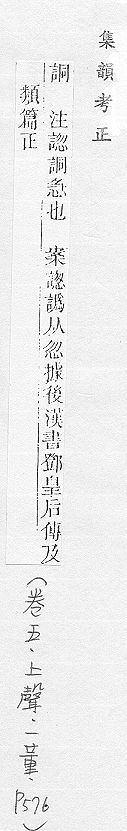 集韻考正
詷　注謥詷急也　案謥譌从忽據後漢書鄧皇后傳及
類篇正
（卷五．上聲．一董．P576）